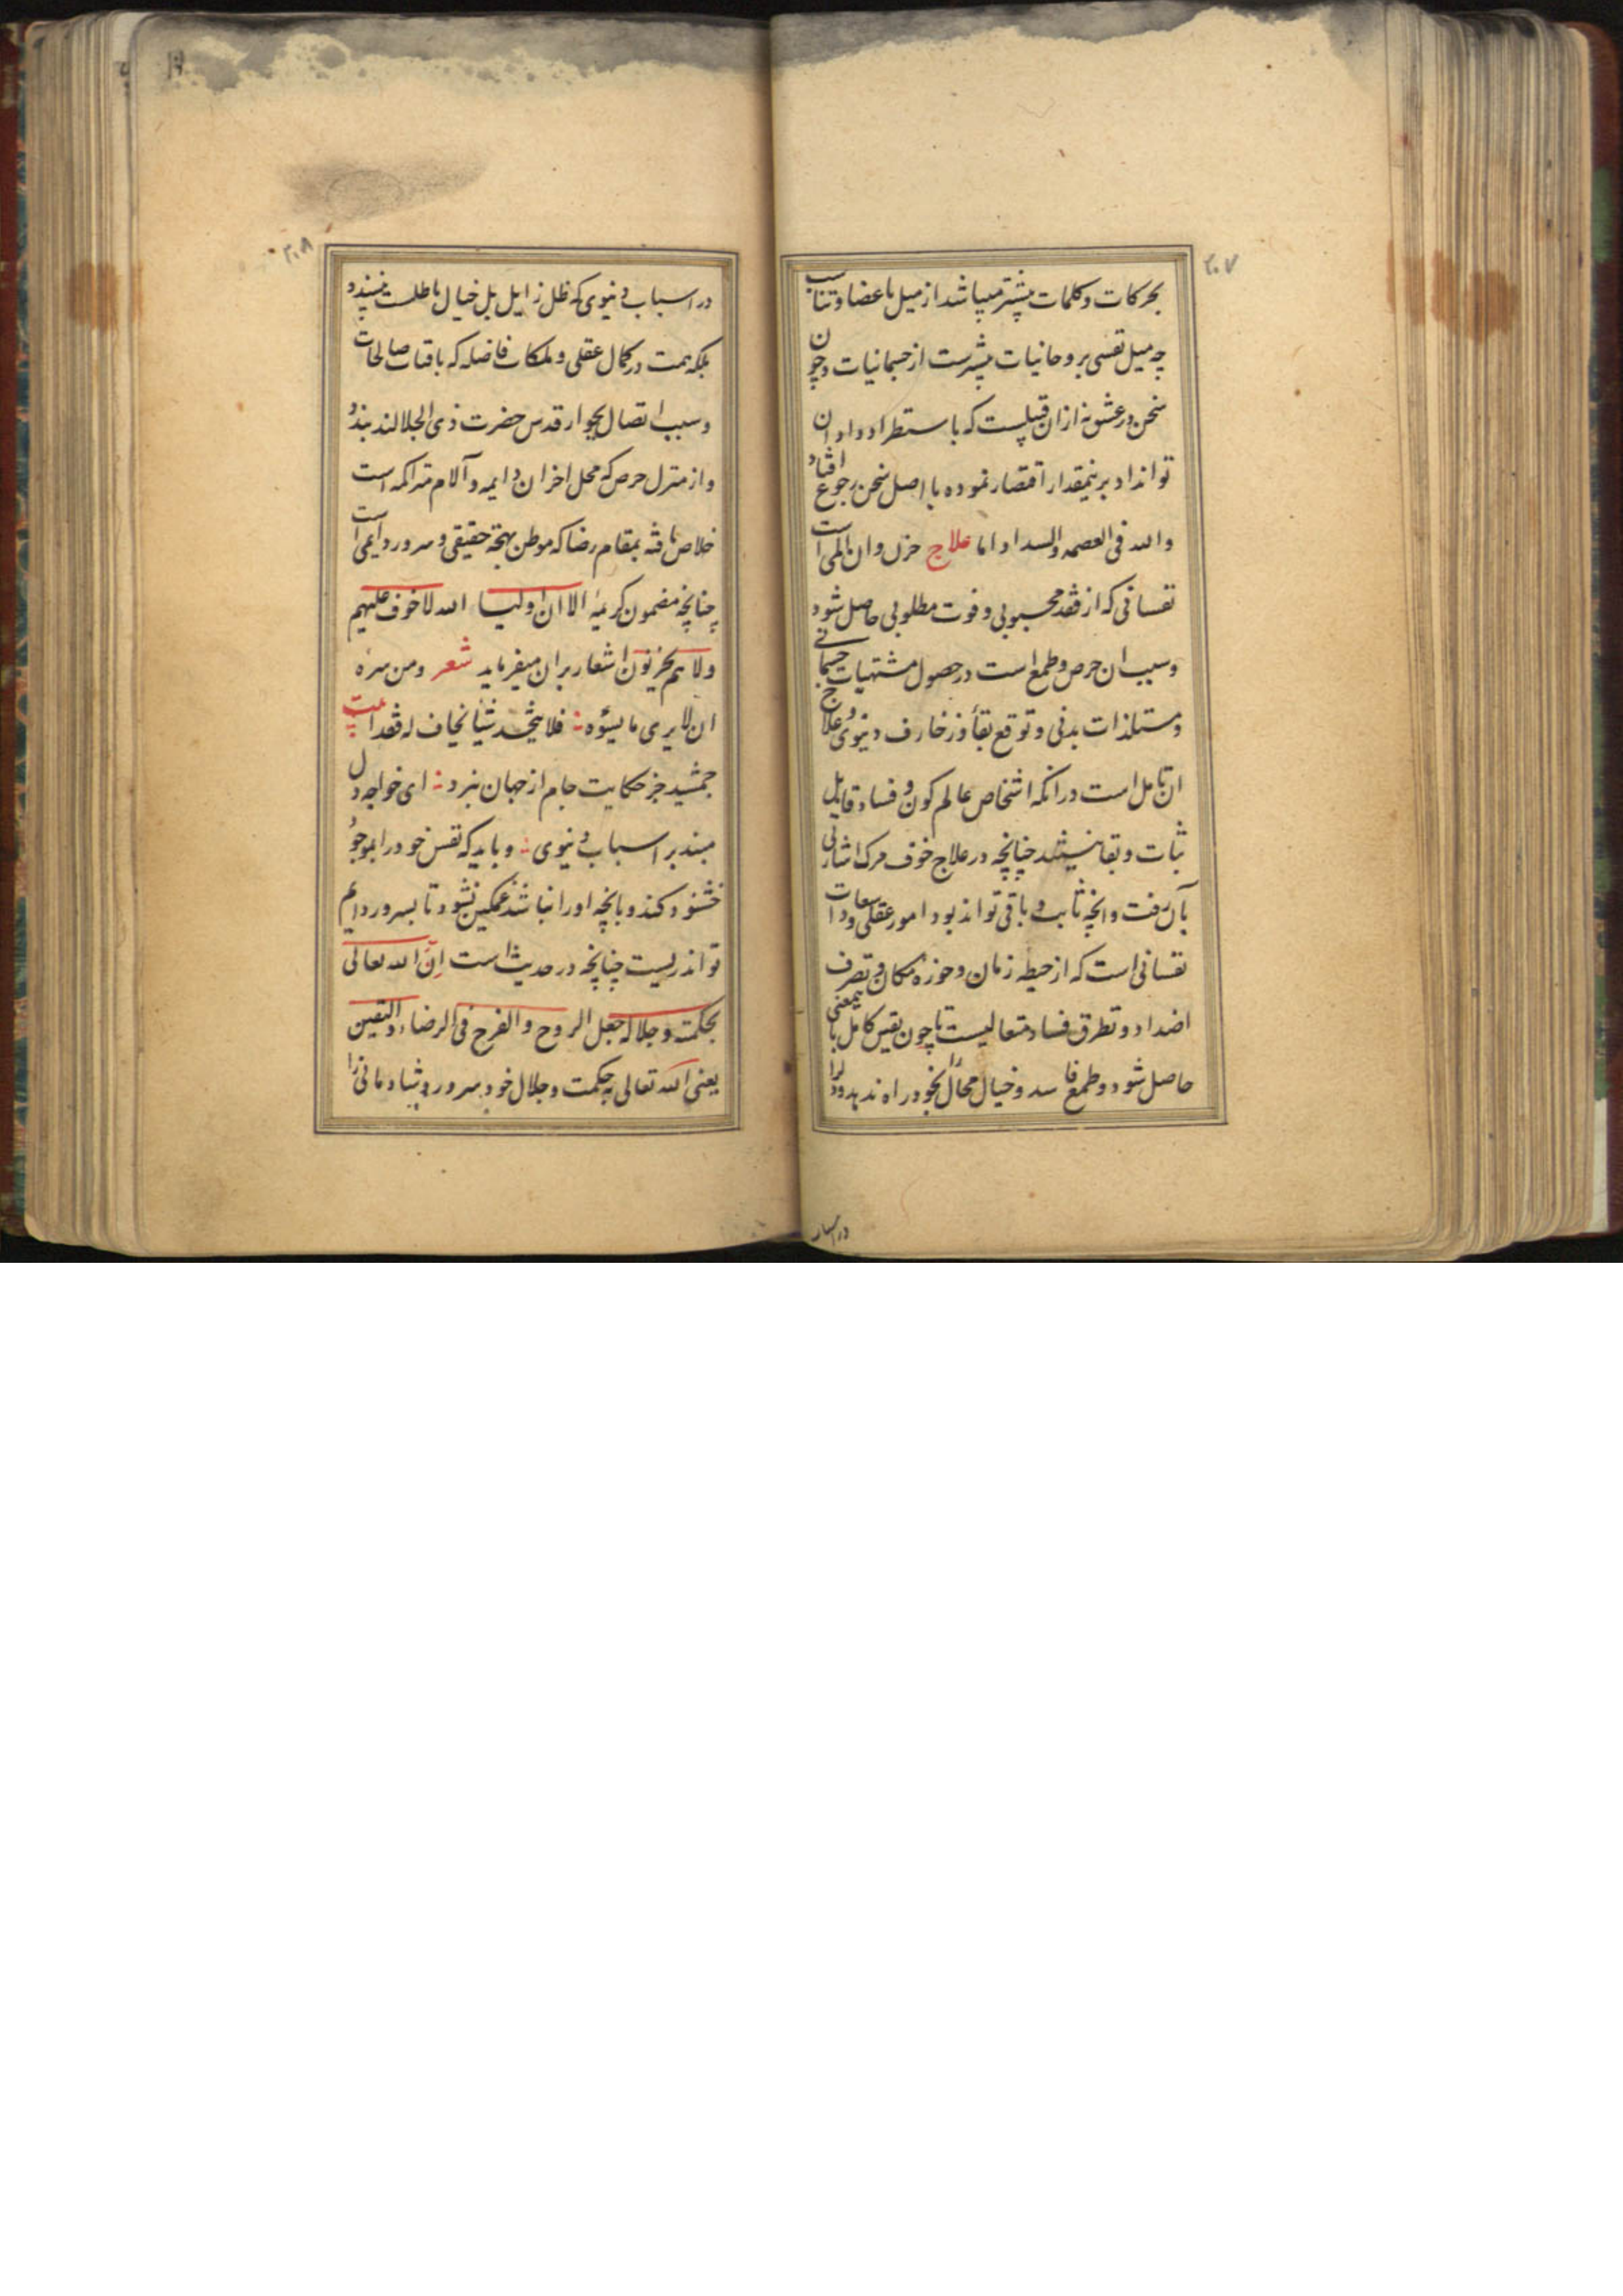 ۲۰۷
بحرکات و کلمات بیشتر میباشد از میل باعضا و تناسب
چه میل نفسی بروحانیات بیشترست از جسمانیات و چون
سخن در عشق نه از ان قبیلست که باستطراد داد ان
تواند داد برینمقدار اقتصار نموده با اصل سخن رجوع افتاد
والله فی العصمه والسداد اما علاج حزن و ان المی است
نفسانی که از فقد محبوبی و فوت مطلوبی حاصل شود
و سبب ان حرص و طمع است در حصول مشتهیات جسمانی
و مستلذات بدنی و توقع بقاء زخارف دنیوی و علاج
ان تامل است در انکه اشخاص عالم کون و فساد قابل
ثبات و بقا نیستند چنانچه در علاج خوف مرک اشارتی
بآن رفت و انچه ثابت و باقی تواند بود امور عقلی و سعادات
نفسانی است که از حیطه زمان و حوزه مکان و تصرف
اضداد و تطرق فساد متعالیست تا چون یقین کامل باینمعنی
حاصل شود و طمع فاسد و خیال محال بخود راه ندهد و دل را
در اسباب
۲۰۸
در اسباب دنیوی که ظل زایل بل خیال باطلست نبندد
بلکه همت در کمال عقلی و ملکات فاضله که باقیات صالحات
و سبب اتصال بجوار قدس حضرت ذی الجلالند بندد
و از منزل حرص که محل احزان دایمه و آلام متراکمه است
خلاص یافته بمقام رضا که موطن بهجه حقیقی و سرور دایمی است
چنانچه مضمون کریمه الا ان اولیا الله لا خوف علیهم
ولا هم یحزنون اشعار بران میفرماید شعر ومن سره
ان لا یری ما یسؤه فلا یتخذ شیئا یخاف له فقدا بیت
جمشید جز حکایت جام از جهان نبرد ای خواجه دل
مبند بر اسباب دنیوی و باید که نفس خود را بموجود
خشنود کند و بانچه اورا نباشد غمکین نشود تا بسرور دایم
تواند زیست چنانچه در حدیث است ان الله تعالی
بحکمته وجلاله جعل الروح والفرح فی الرضاء والیقین
یعنی الله تعالی بحکمت و جلال خود سرور و شادمانی را